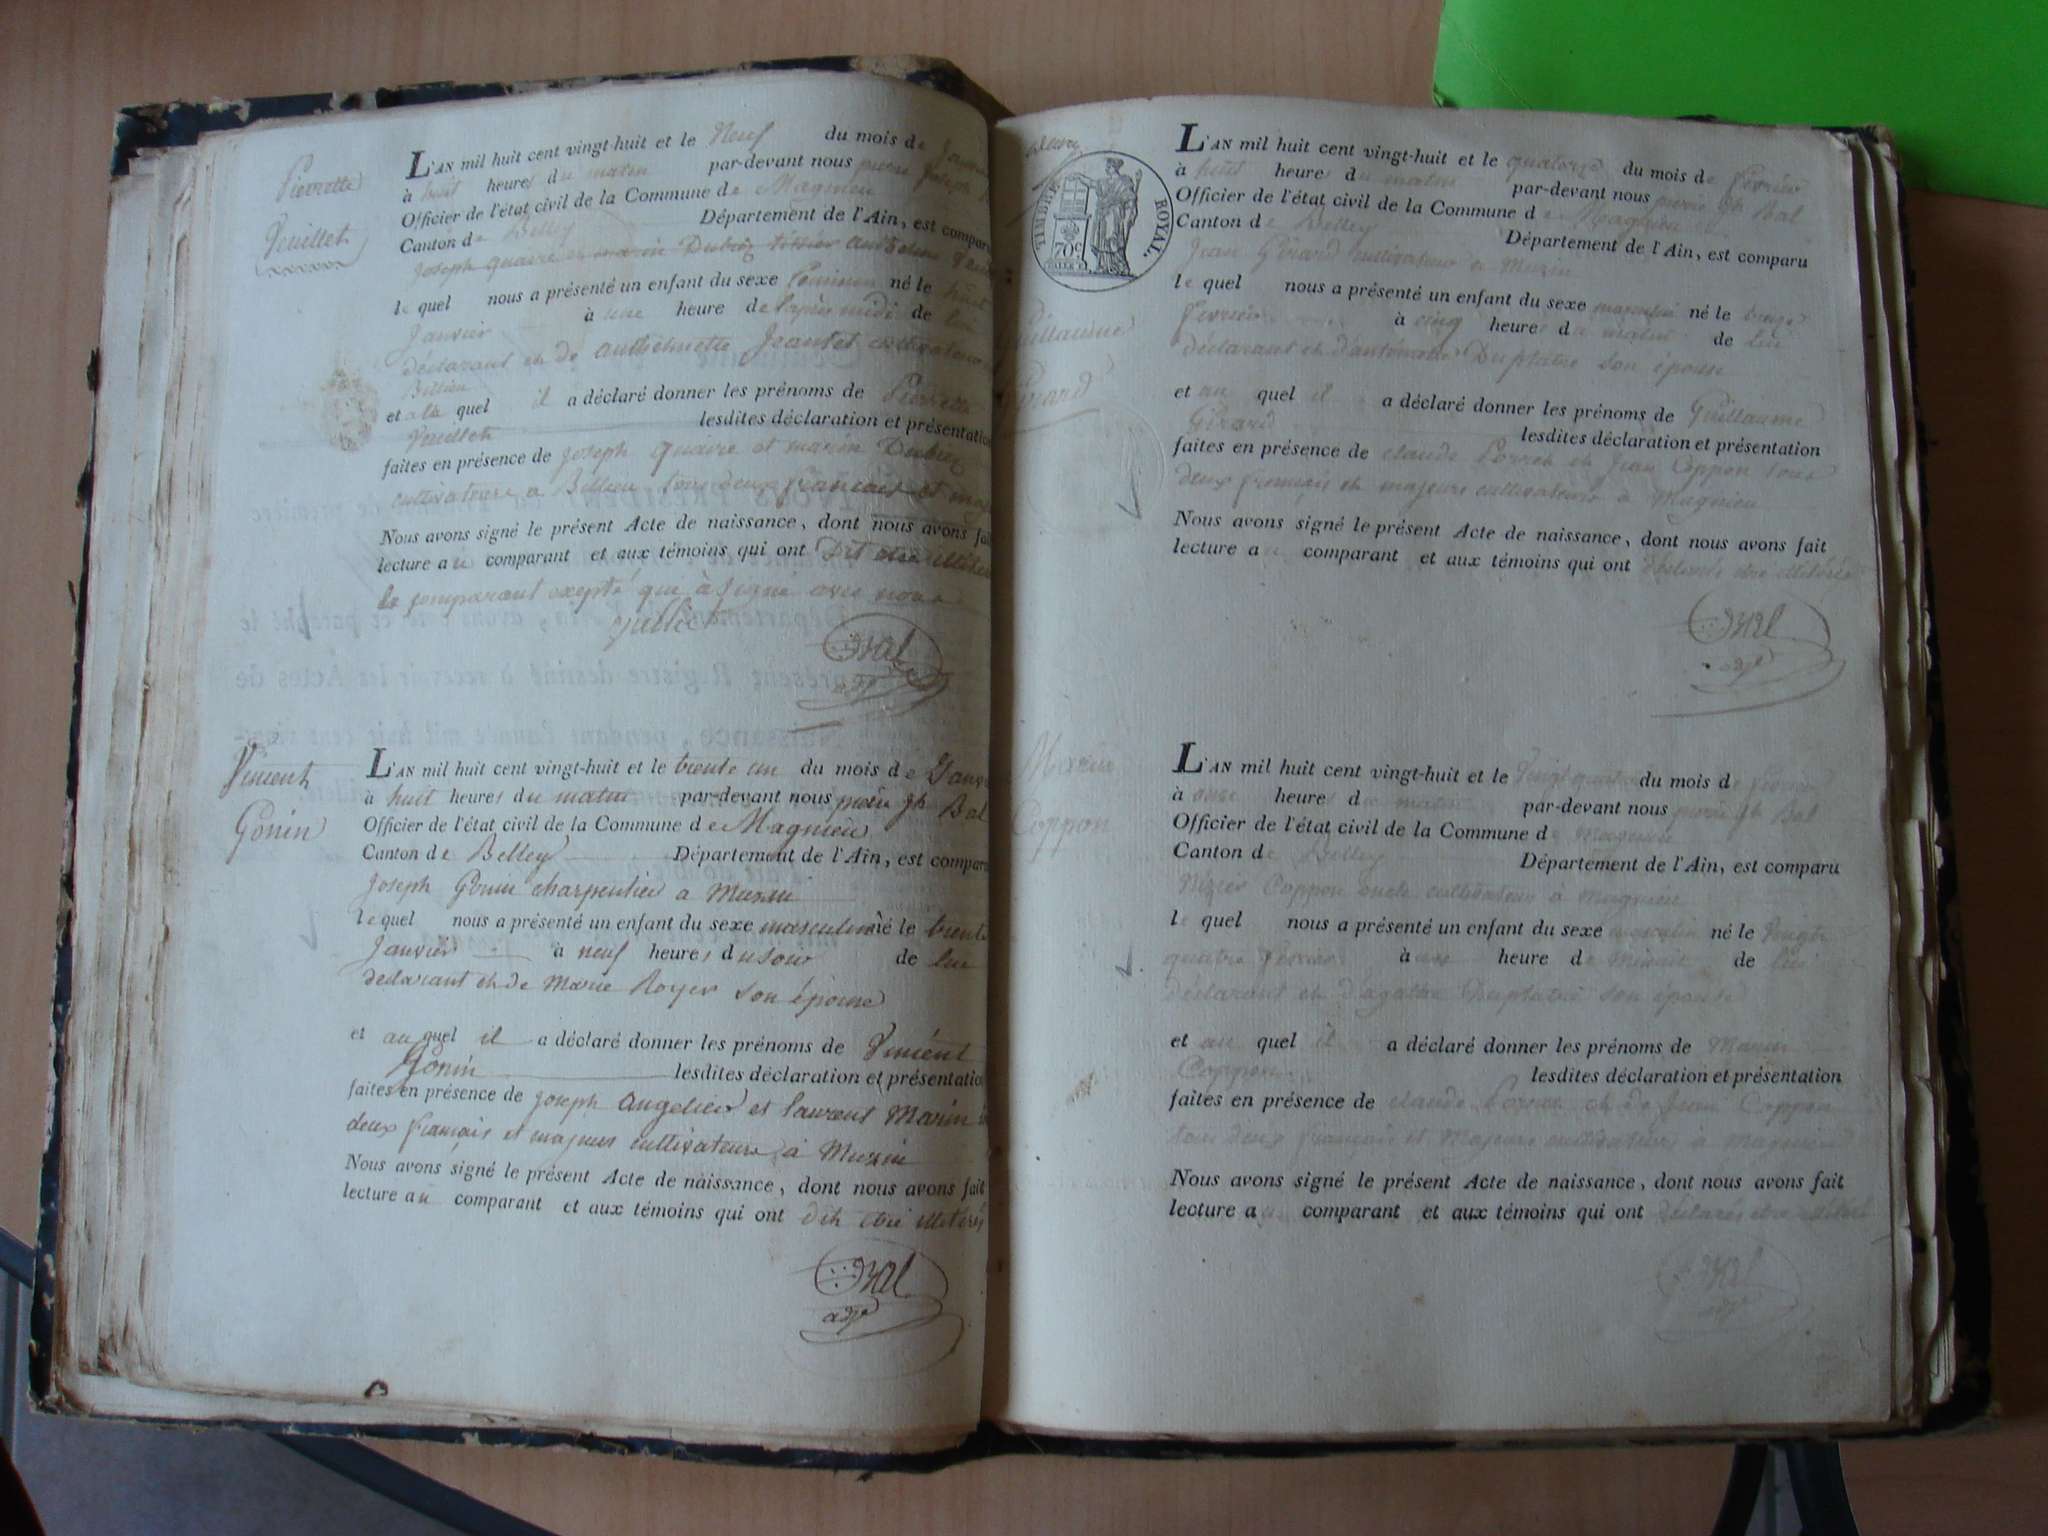 Pierrette
Vuillet
L'AN mil huit cent vingt-huit et le Neuf du mois de Janvier
à huit heures du matin par-devant nous pierre Joseph
Officier de l'état civil de la Commune de Magnieu
Canton de Belley Département de l'Ain, est comparu
Joseph quaire et marin Dubiez
le quel nous a présenté un enfant du sexe feminin né le huit
Janvier à une heure de l'apres midi de lui
déclarant et de anthelmette Jeantet
Billieu
et a la quel il a déclaré donner les prénoms de Pierrette
Vuillet lesdites déclaration et présentation
faites en présence de Joseph quaire et marin Dubiez
cultivateurs a Billieu tous deux français et
Nous avons signé le présent Acte de naissance, dont nous avons fait
lecture au comparant et aux témoins qui ont Dit être
le comparant excepté que à signé avec nous
Bal
adjt
Vincent
Gonin
L'AN mil huit cent vingt-huit et le trente un du mois de Janvier
à huit heures du matin par-devant nous pierre Jh Bal
Officier de l'état civil de la Commune de Magnieu
Canton de Belley Département de l'Ain, est comparu
Joseph Gonin charpentier a Muzin
le quel nous a présenté un enfant du sexe masculin né le trente
Janvier à neuf heures du soir de lui
déclarant et de Marie Royer son épouse
et au quel il a déclaré donner les prénoms de Vincent
Gonin lesdites déclaration et présentation
faites en présence de Joseph Angelier et laurent Marin
deux français et majeurs cultivateurs à Muzin
Nous avons signé le présent Acte de naissance, dont nous avons fait
lecture au comparant et aux témoins qui ont dit être illitérés
Bal
adjt
TIMBRE ROYAL.
70c
Guillaume
Girard
L'AN mil huit cent vingt-huit et le quatorze du mois de fevrier
à huit heures du matin par-devant nous pierre Jh Bal
Officier de l'état civil de la Commune de Magnieu
Canton de Belley Département de l'Ain, est comparu
Jean Girard cultivateur a Muzin
le quel nous a présenté un enfant du sexe masculin né le treize
fevrier à cinq heures du matin de lui
déclarant et d'antoinette Duplatre son épouse
et au quel il a déclaré donner les prénoms de Guillaume
Girard lesdites déclaration et présentation
faites en présence de claude Porret et Jean Coppon tous
deux français et majeurs cultivateurs à Magnieu
Nous avons signé le présent Acte de naissance, dont nous avons fait
lecture au comparant et aux témoins qui ont déclarés être illitérés
Bal
adjt
Marin
Coppon
L'AN mil huit cent vingt-huit et le Vingt quatre du mois de fevrier
à onze heures du matin par-devant nous pierre Jh Bal
Officier de l'état civil de la Commune de Magnieu
Canton de Belley Département de l'Ain, est comparu
Nizier Coppon cultivateur à Magnieu
le quel nous a présenté un enfant du sexe masculin né le Vingt
quatre fevrier à une heure de Minuit de lui
déclarant et d'agathe Duplatre son épouse
et au quel il a déclaré donner les prénoms de Marin
Coppon lesdites déclaration et présentation
faites en présence de claude Porret et de Jean Coppon
tous deux français et Majeurs cultivateurs à Magnieu
Nous avons signé le présent Acte de naissance, dont nous avons fait
lecture au comparant et aux témoins qui ont déclarés être
Bal
adjt